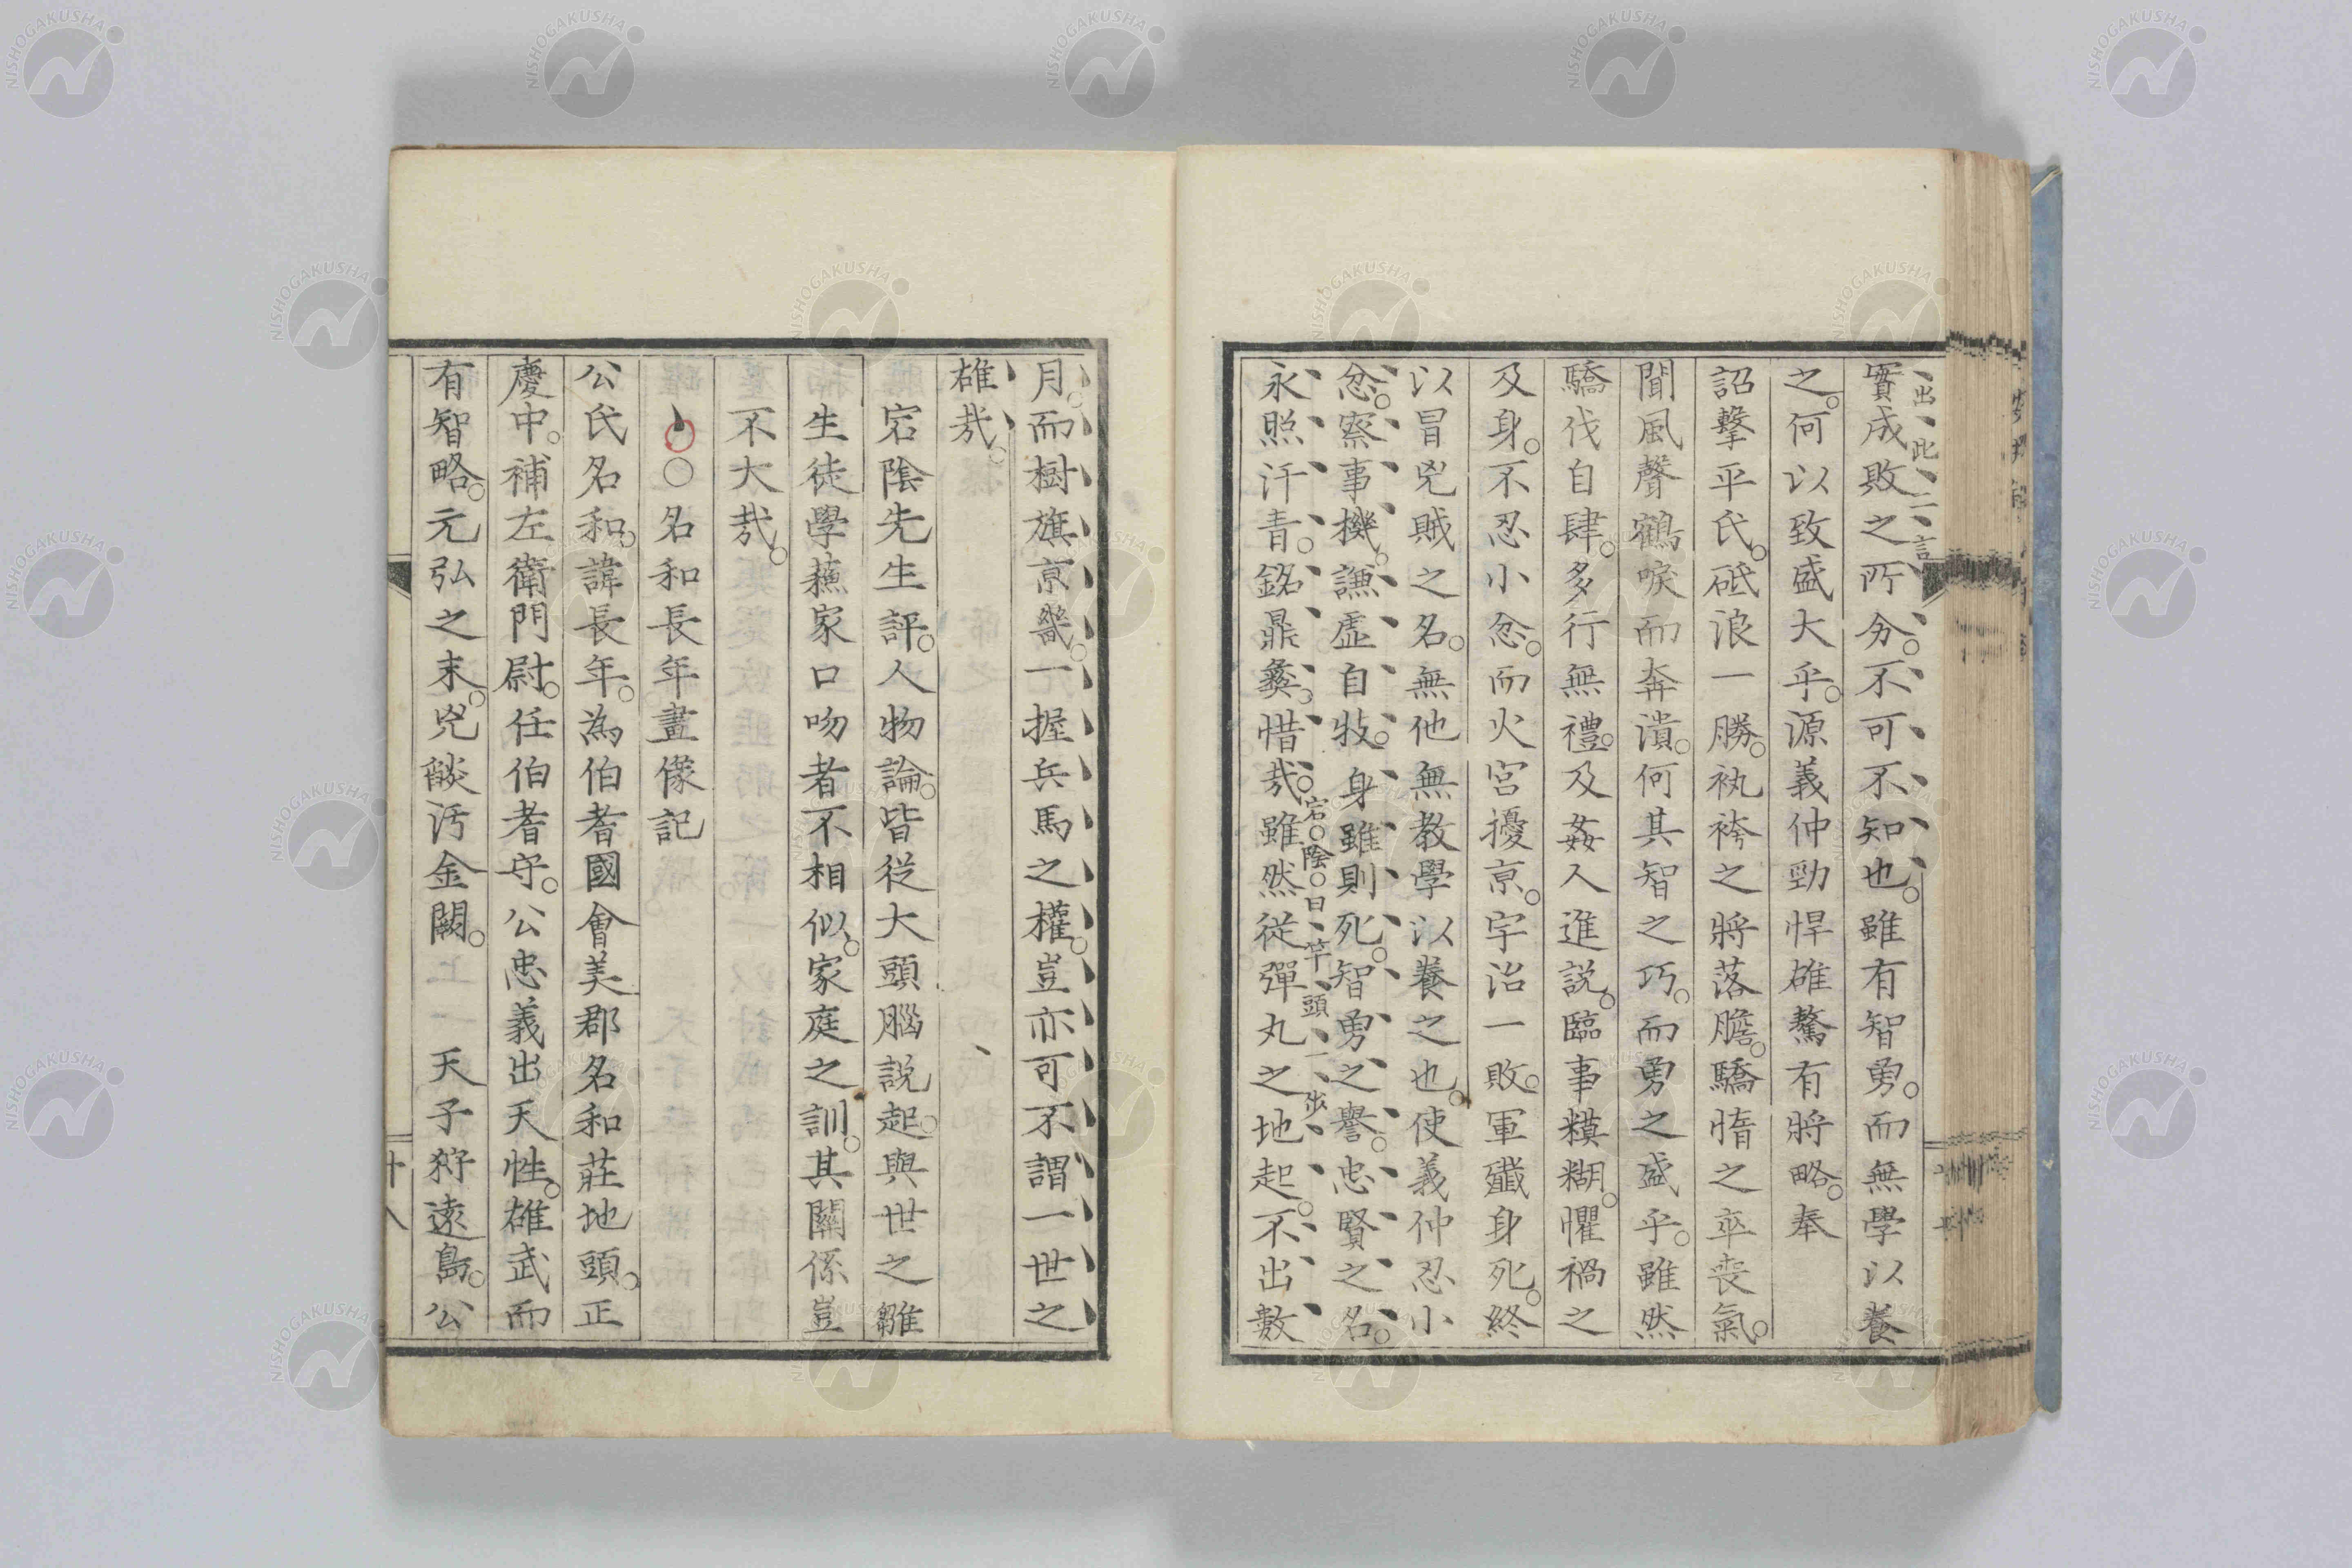 實成敗之所分。不可不知也。雖有智勇。而無學以養
出此二言
之。何以致盛大乎。源義仲勁悍雄驁有將略。奉
詔擊平氏。砥浪一勝。執袴之將落膽。驕惰之卒喪氣。
聞風聲鶴唳而奔潰。何其智之巧。而勇之盛乎。雖然
驕伐自肆。多行無禮。及姦人進說。臨事糢糊。懼禍之
及身。不忍小忿。而火宮擾京。宇治一敗。軍殲身死。終
以冒兇賊之名。無他無教學以養之也。使義仲忍小
忿。察事機。謙虛自牧。身雖則死。智勇之譽。忠賢之名。
永照汗青。銘鼎彝。惜哉。雖然從彈丸之地起。不出數
宕陰曰竿頭一步
月。而樹旗京畿。一握兵馬之權。豈亦可不謂一世之
雄哉。
宕陰先生評。人物論。皆從大頭腦說起。與世之雛
生徒學蘓家口吻者不相似。家庭之訓。其關係豈
不大哉。
○名和長年畫像記
公氏名和。諱長年。為伯耆國會美郡名和莊地頭。正
慶中。補左衛門尉。任伯耆守。公忠義出天性。雄武而
有智略。元弘之末。兇燄汚金闕。天子狩遠島。公
十八
NISHOGAKUSHA